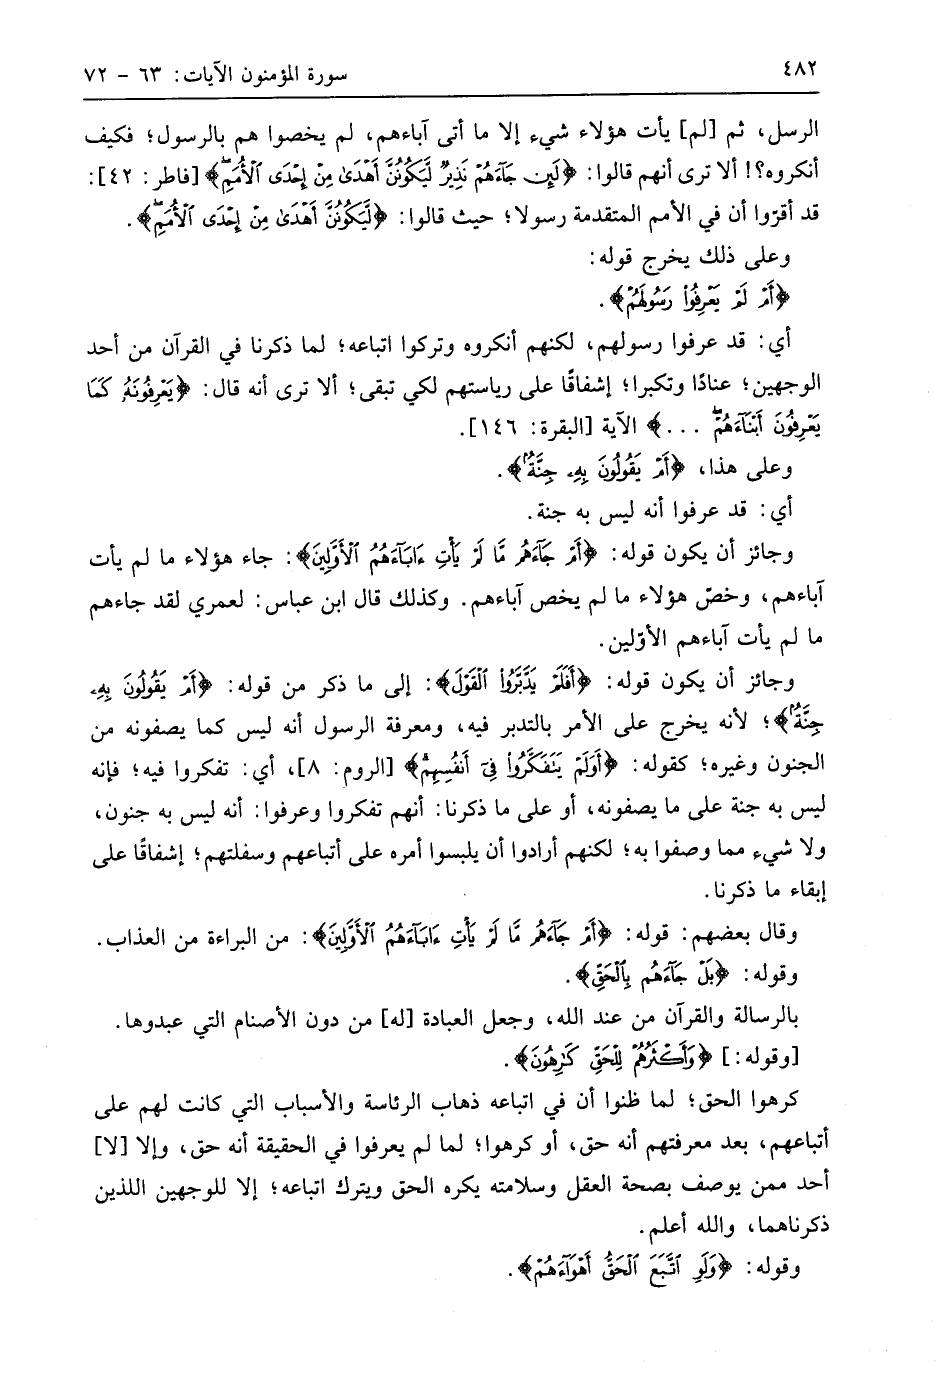 ٤٨٢
سورة المؤمنون الآيات: ٦٣ - ٧٢
الرسل، ثم [لم] يأت هؤلاء شيء إلا ما أتى آباءهم، لم يخصوا هم بالرسول؛ فكيف
أنكروه؟! ألا ترى أنهم قالوا: ﴿لَئِن جَآءَهُمۡ نَذِيرٞ لَّيَكُونُنَّ أَهۡدَىٰ مِنۡ إِحۡدَى ٱلۡأُمَمِۖ﴾ [فاطر: ٤٢]:
قد أقرّوا أن في الأمم المتقدمة رسولا؛ حيث قالوا: ﴿لَّيَكُونُنَّ أَهۡدَىٰ مِنۡ إِحۡدَى ٱلۡأُمَمِۖ﴾.
وعلى ذلك يخرج قوله:
﴿أَمۡ لَمۡ يَعۡرِفُواْ رَسُولَهُمۡ﴾.
أي: قد عرفوا رسولهم، لكنهم أنكروه وتركوا اتباعه؛ لما ذكرنا في القرآن من أحد
الوجهين؛ عنادًا وتكبرا؛ إشفاقًا على رياستهم لكي تبقى؛ ألا ترى أنه قال: ﴿يَعۡرِفُونَهُۥ كَمَا
يَعۡرِفُونَ أَبۡنَآءَهُمۡۖ ...﴾ الآية [البقرة: ١٤٦].
وعلى هذا، ﴿أَمۡ يَقُولُونَ بِهِۦ جِنَّةُۢ﴾.
أي: قد عرفوا أنه ليس به جنة.
وجائز أن يكون قوله: ﴿أَمۡ جَآءَهُم مَّا لَمۡ يَأۡتِ ءَابَآءَهُمُ ٱلۡأَوَّلِينَ﴾: جاء هؤلاء ما لم يأت
آباءهم، وخصّ هؤلاء ما لم يخص آباءهم. وكذلك قال ابن عباس: لعمري لقد جاءهم
ما لم يأت آباءهم الأوّلين.
وجائز أن يكون قوله: ﴿أَفَلَمۡ يَدَّبَّرُواْ ٱلۡقَوۡلَ﴾: إلى ما ذكر من قوله: ﴿أَمۡ يَقُولُونَ بِهِۦ
جِنَّةُۢ﴾؛ لأنه يخرج على الأمر بالتدبر فيه، ومعرفة الرسول أنه ليس كما يصفونه من
الجنون وغيره؛ كقوله: ﴿أَوَلَمۡ يَتَفَكَّرُواْ فِيٓ أَنفُسِهِمۗ﴾ [الروم: ٨]، أي: تفكروا فيه؛ فإنه
ليس به جنة على ما يصفونه، أو على ما ذكرنا: أنهم تفكروا وعرفوا: أنه ليس به جنون،
ولا شيء مما وصفوا به؛ لكنهم أرادوا أن يلبسوا أمره على أتباعهم وسفلتهم؛ إشفاقًا على
إبقاء ما ذكرنا.
وقال بعضهم: قوله: ﴿أَمۡ جَآءَهُم مَّا لَمۡ يَأۡتِ ءَابَآءَهُمُ ٱلۡأَوَّلِينَ﴾: من البراءة من العذاب.
وقوله: ﴿بَلۡ جَآءَهُم بِٱلۡحَقِّ﴾.
بالرسالة والقرآن من عند الله، وجعل العبادة [له] من دون الأصنام التي عبدوها.
[وقوله:] ﴿وَأَكۡثَرُهُمۡ لِلۡحَقِّ كَٰرِهُونَ﴾.
كرهوا الحق؛ لما ظنوا أن في اتباعه ذهاب الرئاسة والأسباب التي كانت لهم على
أتباعهم، بعد معرفتهم أنه حق، أو كرهوا؛ لما لم يعرفوا في الحقيقة أنه حق، وإلا [لا]
أحد ممن يوصف بصحة العقل وسلامته يكره الحق ويترك اتباعه؛ إلا للوجهين اللذين
ذكرناهما، والله أعلم.
وقوله: ﴿وَلَوِ ٱتَّبَعَ ٱلۡحَقُّ أَهۡوَآءَهُمۡ﴾.